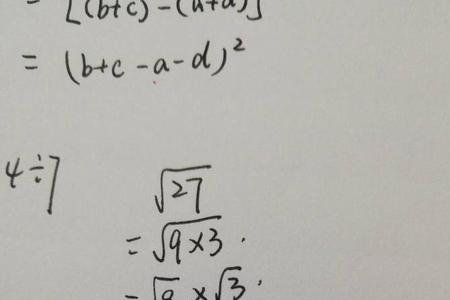 = [(b+c)-(a+d)]
= (b+c-a-d)²
4÷7
√27
= √9×3
= √9 × √3